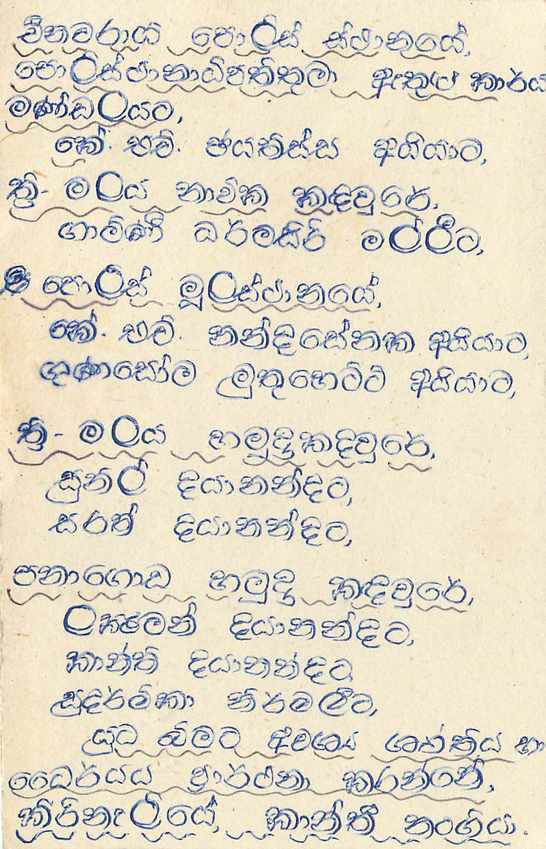 චීනවරාය පොලිස් ස්ථානයේ,
පොලිස්ථානාධිපතිතුමා ඇතුලු කාර්ය
මණ්ඩලයට,
කේ. එච්. ජයතිස්ස අයියාට,
ත්‍රි- මලය නාවික කඳවුරේ,
ගාමිණී ධර්මසිරි මල්ලීට,
පොලිස් මූලස්ථානයේ,
කේ. එච්. නන්දසේනක අයියාට,
ගුණසෝම මුතුහෙට්ටි අයියාට,
ත්‍රි- මලය හමුදාකඳවුරේ,
සුනිල් දයානන්දට,
සරත් දයානන්දට,
පනාගොඩ හමුදා කඳවුරේ,
ලක්ෂමන් දයානන්දට,
කාන්ති දයානන්දට
සුදර්මිකා නිර්මලීට,
යුධ බිමට අවශ්‍ය ශක්තිය හා
ධෛර්යය ප්‍රාර්ථනා කරන්නේ,
කිරිනැලියේ, කාන්ති නංගියා.